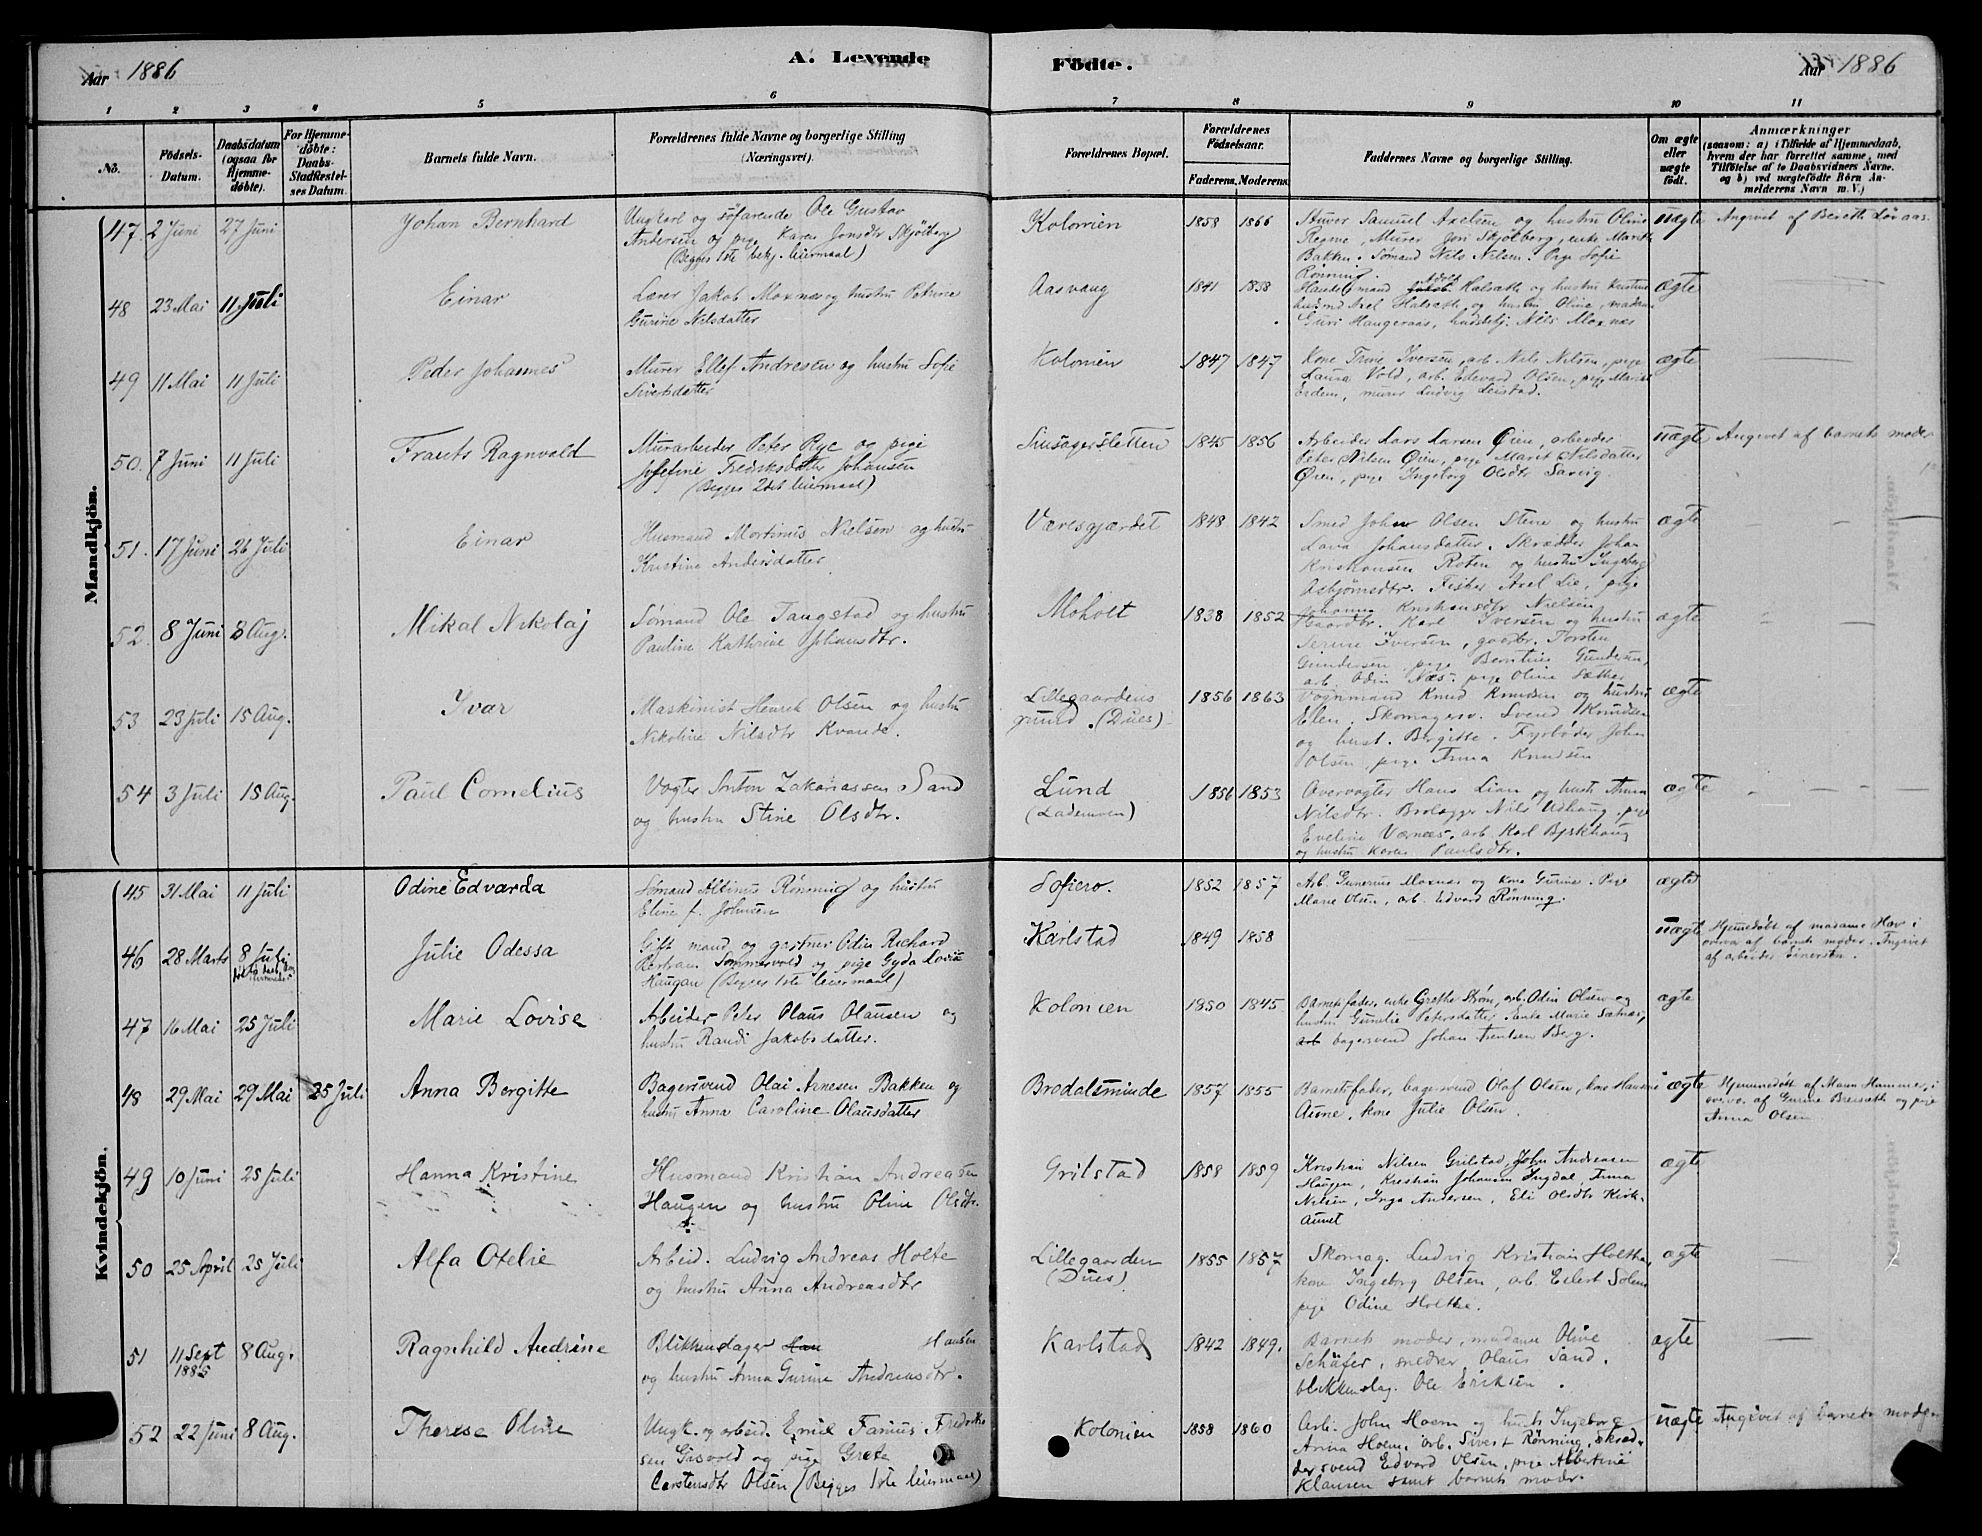 Aar 1886
A. Levende
Födte.
Aar 1886
1 2 3 4 5 6 7 8 9 10 11
No.
Födsels-Datum.
Daabsdatum (ogsaa for Hjemme-döbte).
For Hjemme-döbte: Daabs-Stadfæstel-ses Datum.
Barnets fulde Navn.
Forældrenes fulde Navne og borgerlige Stilling (Næringsvei).
Forældrenes Bopæl.
Forældrenes Födselsaar.
Faderens. Moderens.
Faddernes Navne og borgerlige Stilling.
Om ægte eller uægte födt.
Anmærkninger
(saasom: a) i Tilfælde af Hjemmedaab,
hvem der har forrettet samme, med
Tilföielse af to Daabsvidners Navne,
og b) ved uægtefödte Börn An-
melderens Navn m. V.)
Mandkjön.
47. 2 Juni 27 Juni Johan Bernhard
Ungkarl og söfarende Ole Gustav
Andersen og pige Karen Jonsdtr Skjölberg
(Begges 1ste bekj. leiermaal)
Kolonien 1858 1866
Murer Samuel Axelsen og hustru Oline
Murer Joh Skjölberg, enke Marith
Bakken. Sömand Nils Nilsen. Pige Sofie
Rönning.
uægte Angivet af Bereth Löraas.
48 23 Mai 11 Juli Einar
Lærer Jakob Moxnes og hustru Petrine
Gurine Nilsdatter
Aasvang 1841 1858
Handelsmand Halseth og hustru Kristine
Axel Halseth og hustru Oline, madame
Guri Haugeraas, Nils Moxnes
ægte
49 11 Mai 11 Juli Peder Johannes
Murer Ellef Andresen og hustru Sofie
Sivertsdatter
Kolonien 1847 1847
Kone Trine Iversen, arb. Nils Nilsen, pige
Laura Vold, arb. Edevard Olsen, pige Marie
murer Ludvig Leistad.
ægte
50. 7 Juni 11 Juli Frants Ragnvald
Murarbeider Peter Rye og pige
Josefine Fredriksdatter Johansen
(Begges 2det leiermaal)
Sluksagerstetten 1845 1856
Arbeider Lars Larsen Öien, arbeider
Peter Nilsen Öien, pige Marit Nilsdatter
Öien, pige Ingeborg Olsdtr Sarvig.
uægte Angivet af barnets moder
51. 17 Juni 26 Juli Einar
Husmand Martinus Nielsen og hustru
Kristine Andersdatter
Væresgjærdet 1848 1842
Smed Johan Olsen Stene og hustru
Lava Johansdatter. Skrædder Johan
Kristiansen Roten og hustru Ingeborg
Asbjörnsdtr. Fisker Axel Lie, pige
Johanna Kristiansdtr Nielsen
ægte
52. 8 Juni 8 Aug. Mikal Nikolaj
Sömand Ole Taugstad og hustru
Pauline Kathrine Johansdtr.
Moholt 1838 1852
Gaardbr. Karl Iversen og hustru
Serine Iversen, gaardbr. Torsten
Gundersen, pige Berntine Gundersen,
arb. Odin Næs. pige Oline Sæther
ægte
53 23 Juli 15 Aug. Ivar
Maskinist Henrik Olsen og hustru
Nikoline Nilsdtr Kvande.
Lillegaardens
grund. (Dues) 1856 1863
Vognmand Knud Knudsen og hustru
Elen. Skomagersv. Svend Knudsen
og hust. Bergitte. Fyrböder Johan
Olsen, pige Anna Knudsen
ægte
54 3 Juli 15 Aug. Paul Cornelius
Vogter Anton Zakariassen Sand
og hustru Stine Olsdtr.
Lund
(Lademoen) 1856 1853
Overvogter Hans Lian og hust. Anna
Nilsdtr. Brolægger Nils Udhaug, pige
Eveline Værnes, arb. Karl Byskhaug
og hustru Karen Paulsdtr.
ægte
Kvindekjön.
45 31 Mai 11 Juli Odine Edvarda
Sömand Albinus Rönning og hustru
Eline f. Johnsen
Sofiero. 1852 1857
Arb. Gunerius Moxnes og kone Gurine. Pige
Marie Olsen, arb. Edvard Rönning.
ægte
46 28 Marts 8 Juli Julie Odessa
Gift mand og gartner Odin Richard
Bertran Sommervold og pige Gyda Lovise
Haugan (Begges 1ste leiermaal)
Karlstad 1849 1858
uægte Hjemedöbt af madame Hov i
overv. af barnets moder. Angivet
af arbeider Einersen.
47 16 Mai 25 Juli Marie Lovise
Arbeider Peter Olaus Olausen og
hustru Randi Jakobsdatter.
Kolonien 1850 1845
Barnets fader, enke Grethe Ström, arb. Odin Olsen og
hustru Gunelie Petersdatter. Enke Marie Sætnes,
arb bagersvend Johan Arentsen Berg.
ægte
48 29 Mai 29 Mai 25 Juli Anna Bergitte
Bagersvend Olai Arnesen Bakken og
hustru Anna Caroline Olausdatter
Brodalsminde 1857 1855
Barnets fader, bagersvend Olaf Olsen, kone Hansine
Aune, kone Julie Olsen.
ægte Hjemmedöbt af Mann Hammer, i
overv. af Gurine Breiseth og pige
Anna Olsen
49 10 Juni 25 Juli Hanna Kristine
Husmand Kristian Andreasen
Haugen og hustru Oline Olsdtr.
Grilstad 1858 1859
Kristian Nilsen Grilstad, John Andreasen
Haugen, Kristian Johansen Ingdal, Anna
Nilsen, Inga Andersen, Eli Olsdtr Kirk-
aunet
ægte
50 25 April 25 Juli Alfa Otelie
Arbeid. Ludvig Andreas Holte
og hustru Anna Andreasdtr
Lillegaarden
(Dues) 1855 1857
Skomag. Ludvig Kristian Holthe,
kone Ingeborg Olsen, arb. Eilert Solem
pige Odine Holthe.
ægte
51 11 Sept 1885 8 Aug. Ragnhild Andrine
Blikkenslager Han Hansen
og hustru Anna Gurine Andreasdtr.
Karlstad 1842 1849.
Barnets moder, madame Oline
Schäfer, snedker Olaus Sand.
blikkenslag. Ole Eriksen.
ægte
52 22 Juni 8 Aug. Therese Oline
Ungk. og arbeid. Emil Fanius Fredrik-
sen Gisvold og pige Grete
Carstensdtr Olsen (Begges 1ste leiermaal)
Kolonien 1858 1860
Arb. John Hoem og hustr. Ingeborg
Anna Hoem, arb. Sivert Rönning, skræd-
dersvend Edvard Olsen, pige Albertine
Klausen samt barnets moder.
uægte Angivet af barnets moder